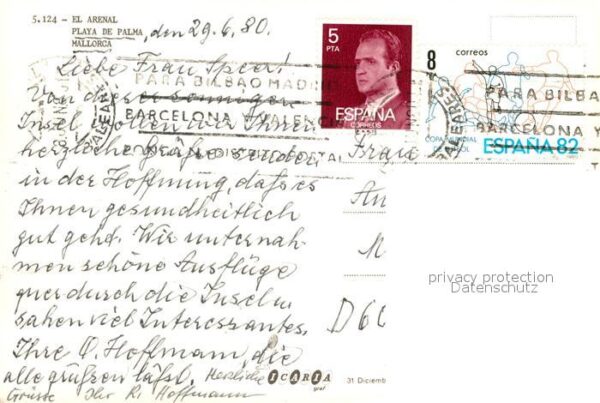 5.124 - EL ARENAL
PLAYA DE PALMA
MALLORCA
, den 29.6.80.
Liebe Frau Speer!
Von dieser sonnigen
Insel wollen wir Ihnen
herzliche Grüße senden
in der Hoffnung, daß es
Ihnen gesundheitlich
gut gehd. Wir unternah-
men schöne Ausflüge
quer durch die Insel u.
sahen viel Interessantes.
Ihre O. Hoffmann, die
alle grüßen läßt. Herzliche
Grüsse Ihr R. Hoffmann
PARA BILBAO MADRID
BARCELONA Y VALENCIA
5
PTA
ESPAÑA
CORREOS
8
correos
ESPAÑA 82
PARA BILBA
BARCELONA Y
BALEARES
Frau
D 66
privacy protection
Datenschutz
ICARIA
31 Diciemb